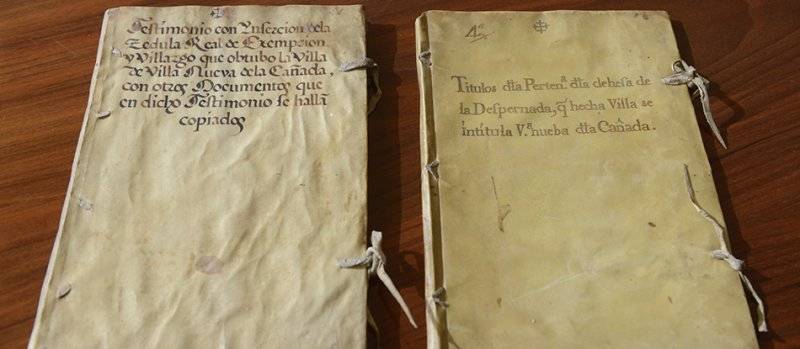 Testimonio con Ynsercion dela
Zedula Real de Exempcion
y Villazgo que obtubo la Villa
de Villa Nueva dela Cañada,
con otros Documentos que
en dicho Testimonio se hallã
copiados
4ª
Titulos dt̃a Perten.ª dt̃a dehesa de
la Despernada, q̃ hecha Villa se
intitula V.ª nueba dt̃a Cañada.